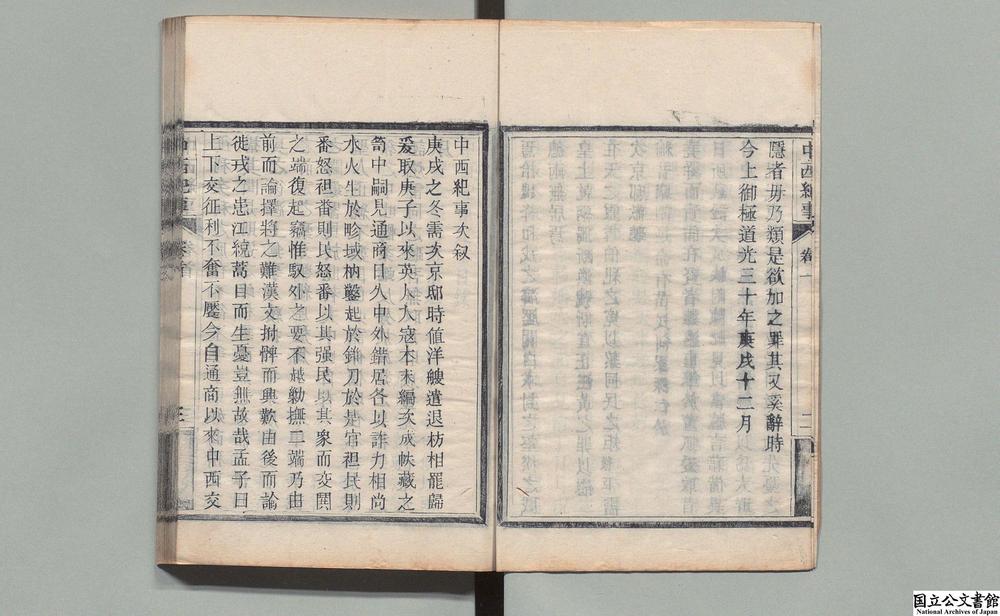 中西紀事
卷一
二
隱者毋乃類是欲加之罪其又奚辭時
今上御極道光三十年庚戌十二月
中西紀事次叙
庚戌之冬需次京邸時值洋艘遣退枋相罷歸
爰取庚子以來英人入寇本末編次成帙藏之
笥中嗣見通商日久中外錯居各以詐力相尚
水火生於畛域枘鑿起於錐刀於是官袒民則
番怒袒番則民怒番以其强民以其衆而交鬨
之端復起竊惟馭外之要不越勦撫二端乃由
前而論擇將之難漢文拊髀而興歎由後而論
徙戎之患江統蒿目而生憂豈無故哉孟子曰
上下交征利不奪不饜今自通商以來中西交
中西紀事
卷首
三
国立公文書館
National Archives of Japan